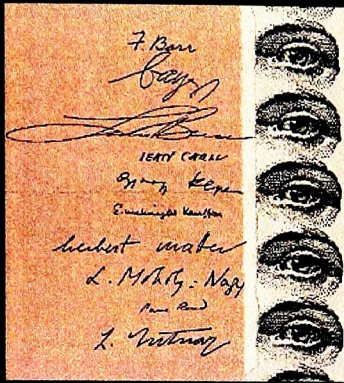 F. Barr
JEAN CARLU
Gyorgy Kepes
E. McKnight Kauffer
herbert matter
L. Moholy-Nagy
Paul Rand
L. Sutnar